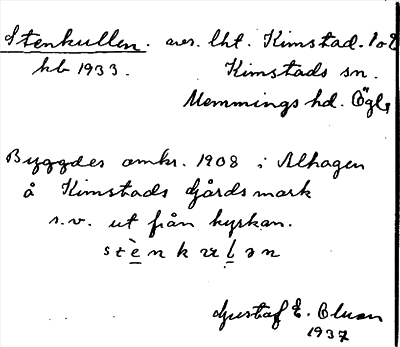 Stenkullen. avs. lht. Kimstad. 1o2
hb 1933. Kimstads sn.
Memmings hd. Ögl.
Byggdes omkr. 1908 i Alhagen
å Kimstads Gårds mark
s.v. ut från kyrkan.
Gustaf E. Bluon
1937